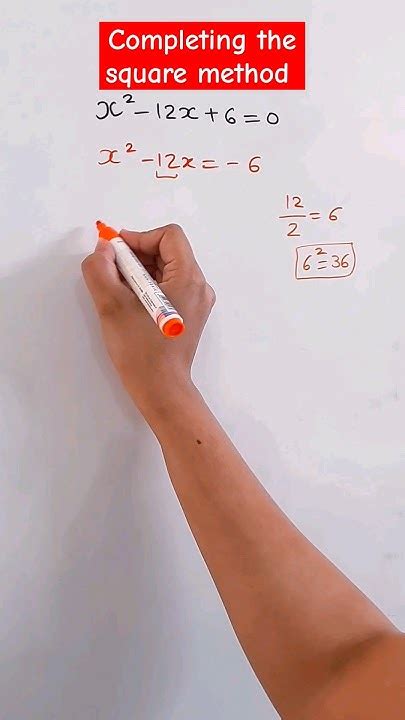 Completing the
square method
x² - 12x + 6 = 0
x² - 12x = - 6
12/2 = 6
6² = 36